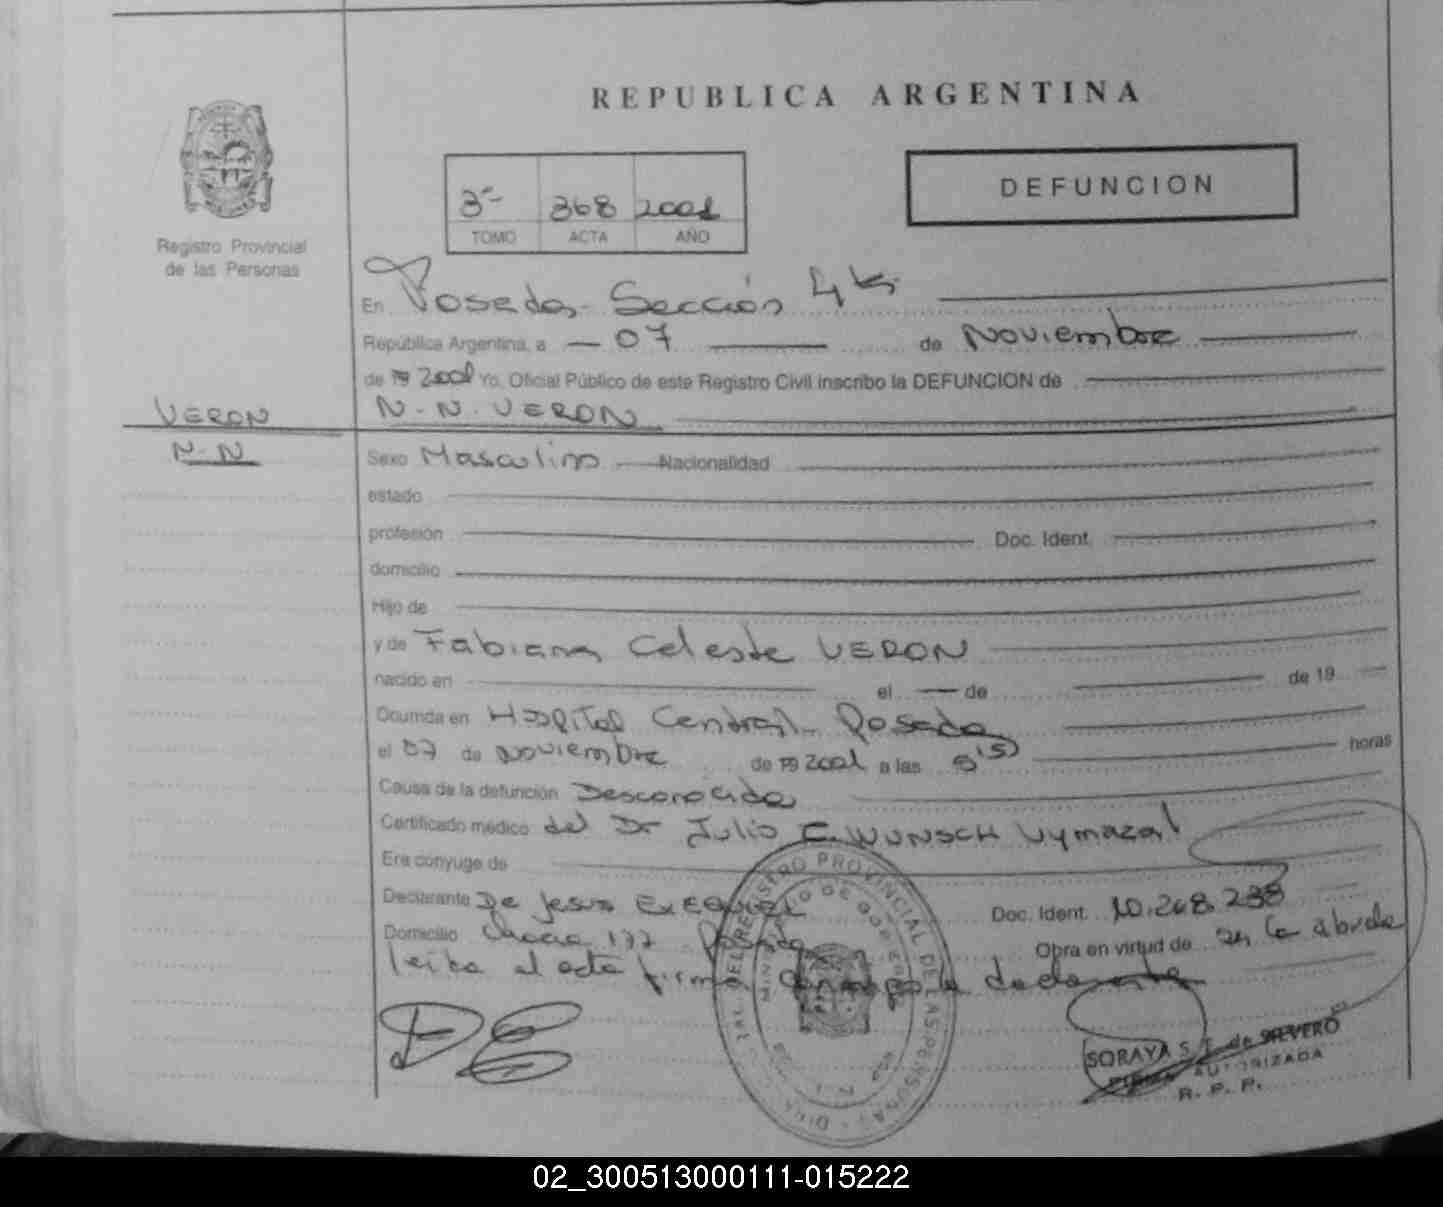 REPUBLICA ARGENTINA
DEFUNCION
3º 368 2001
TOMO ACTA AÑO
Registro Provincial
de las Personas
En Posadas - Sección 4ta
República Argentina, a 07 de Noviembre
de 19 2001 Yo, Oficial Público de este Registro Civil inscribo la DEFUNCION de
VERON
N.N. VERON
N-N
Sexo Masculino Nacionalidad
estado
profesión Doc. Ident.
domicilio
Hijo de
y de Fabiana Celeste VERON
nacido en el de de 19
Ocurrida en Hospital Central Posadas
el 07 de Noviembre de 19 2001 a las horas
Causa de la defunción Desconocida
Certificado médico del Dr Julio C. WUNSCH Vymazal
Era cónyuge de
Declarante De Jesus EXEQUIEL Doc. Ident.
Domicilio Posadas Obra en virtud de
leida el acta firma la declarante
REGISTRO PROVINCIAL DE LAS PERSONAS
SORAYA S. de SILVERO
FIRMA AUTORIZADA
R. P. P.
02_300513000111-015222